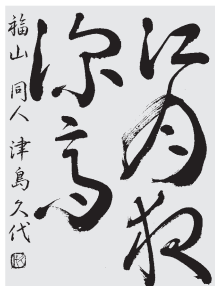 江月夜
深高
福山 同人 津島久代